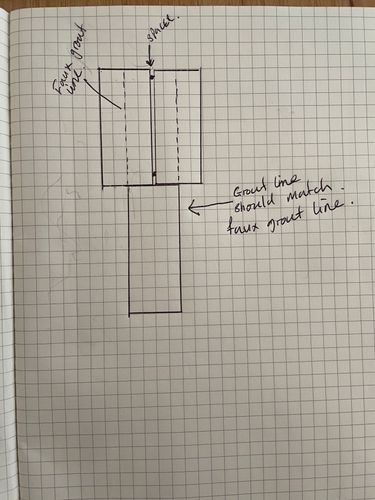 Faux grout
line.
spacer.
Grout line
should match
faux grout line.